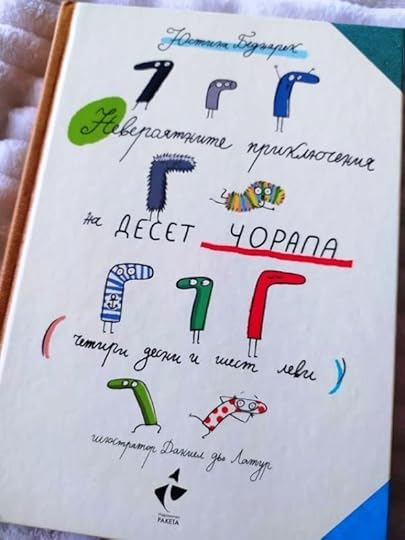 Юстина Беднарек
Невероятните приключения
на ДЕСЕТ ЧОРАПА
(четири десни и шест леви)
илюстратор Даниел дьо Латур
Издателство
РАКЕТА